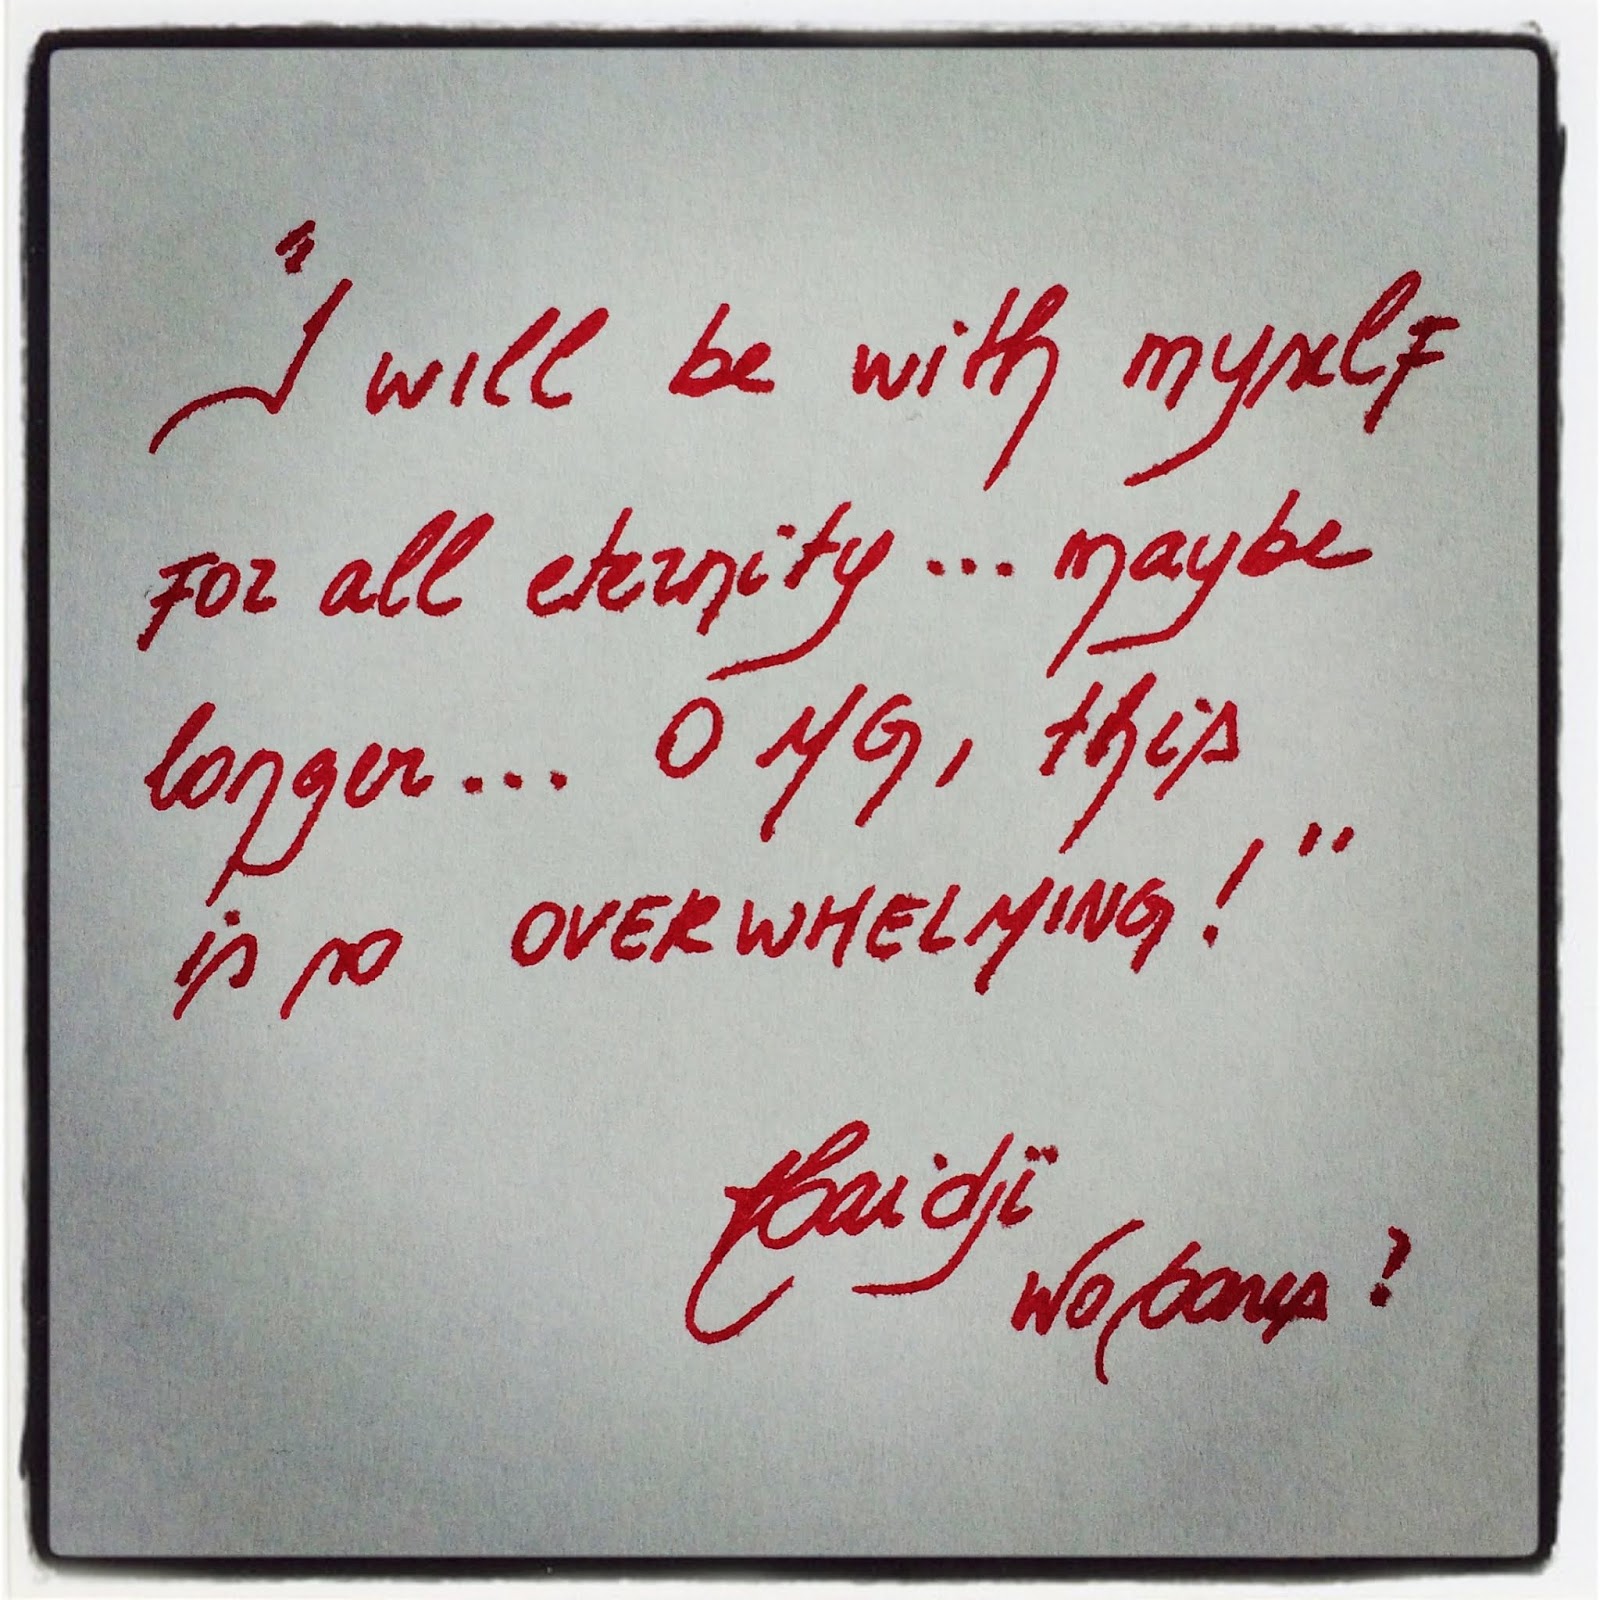 "I will be with myself
for all eternity... maybe
longer... OMG, this
is so OVERWHELMING!"
Haidji
Who cares?